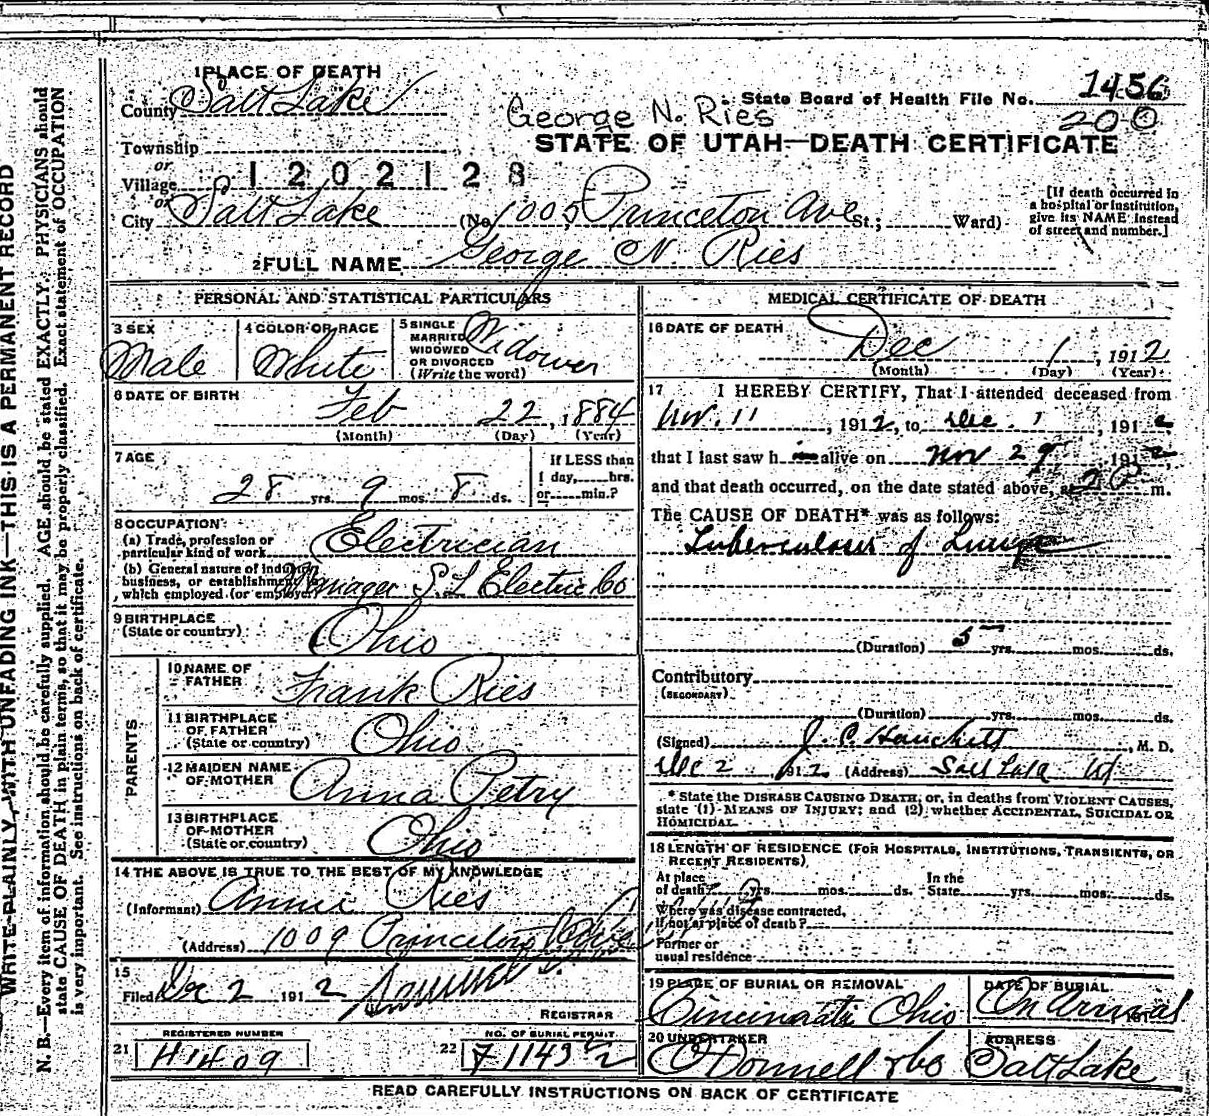 WRITE PLAINLY, WITH UNFADING INK—THIS IS A PERMANENT RECORD
N. B.—Every item of information should be carefully supplied. AGE should be stated EXACTLY. PHYSICIANS should
state CAUSE OF DEATH in plain terms, so that it may be properly classified. Exact statement of OCCUPATION
is very important. See instructions on back of certificate.
1 PLACE OF DEATH
County Salt Lake
George N. Ries
State Board of Health File No. 1456
200
STATE OF UTAH—DEATH CERTIFICATE
Township
or
Village
1202128
or
City Salt Lake (No. 1005 Princeton Ave St.; Ward)
[If death occurred in
a hospital or institution,
give its NAME instead
of street and number.]
2 FULL NAME George N. Ries
PERSONAL AND STATISTICAL PARTICULARS
3 SEX
Male
4 COLOR OR RACE
White
5 SINGLE
MARRIED
WIDOWED
OR DIVORCED
(Write the word)
Widower
6 DATE OF BIRTH
Feb 22, 1884
(Month) (Day) (Year)
7 AGE
28 yrs. 9 mos. 8 ds.
If LESS than
1 day, hrs.
or min.?
8 OCCUPATION
(a) Trade, profession or
particular kind of work
Electrician
(b) General nature of industry,
business, or establishment in
which employed (or employer)
Manager S. L Electric Co
9 BIRTHPLACE
(State or country)
Ohio
PARENTS
10 NAME OF
FATHER
Frank Ries
11 BIRTHPLACE
OF FATHER
(State or country)
Ohio
12 MAIDEN NAME
OF MOTHER
Anna Petry
13 BIRTHPLACE
OF MOTHER
(State or country)
Ohio
14 THE ABOVE IS TRUE TO THE BEST OF MY KNOWLEDGE
(Informant) Annie Ries
(Address) 1009 Princeton Ave
15
Filed Dec 2 1912
REGISTRAR
REGISTERED NUMBER
21 H1409
NO. OF BURIAL PERMIT
22
MEDICAL CERTIFICATE OF DEATH
16 DATE OF DEATH
Dec 1, 1912
(Month) (Day) (Year)
17 I HEREBY CERTIFY, That I attended deceased from
Nov. 11, 1912, to Dec. 1, 1912,
that I last saw him alive on Nov 29, 1912,
and that death occurred, on the date stated above, at m.
The CAUSE OF DEATH* was as follows:
Tuberculosis of Lungs
(Duration) 5 yrs. mos. ds.
Contributory
(SECONDARY)
(Duration) yrs. mos. ds.
(Signed) J. C. Hanchett, M. D.
Dec 2 1912 (Address) Salt Lake Ut
* State the DISEASE CAUSING DEATH, or, in deaths from VIOLENT CAUSES,
state (1) MEANS OF INJURY; and (2) whether ACCIDENTAL, SUICIDAL OR
HOMICIDAL.
18 LENGTH OF RESIDENCE (FOR HOSPITALS, INSTITUTIONS, TRANSIENTS, OR
RECENT RESIDENTS)
At place
of death yrs. mos. ds.
In the
State yrs. mos. ds.
Where was disease contracted,
if not at place of death?
Former or
usual residence
19 PLACE OF BURIAL OR REMOVAL
Cincinnati Ohio
DATE OF BURIAL
On Arrival
20 UNDERTAKER
O'Donnell & Co
ADDRESS
Salt Lake
READ CAREFULLY INSTRUCTIONS ON BACK OF CERTIFICATE